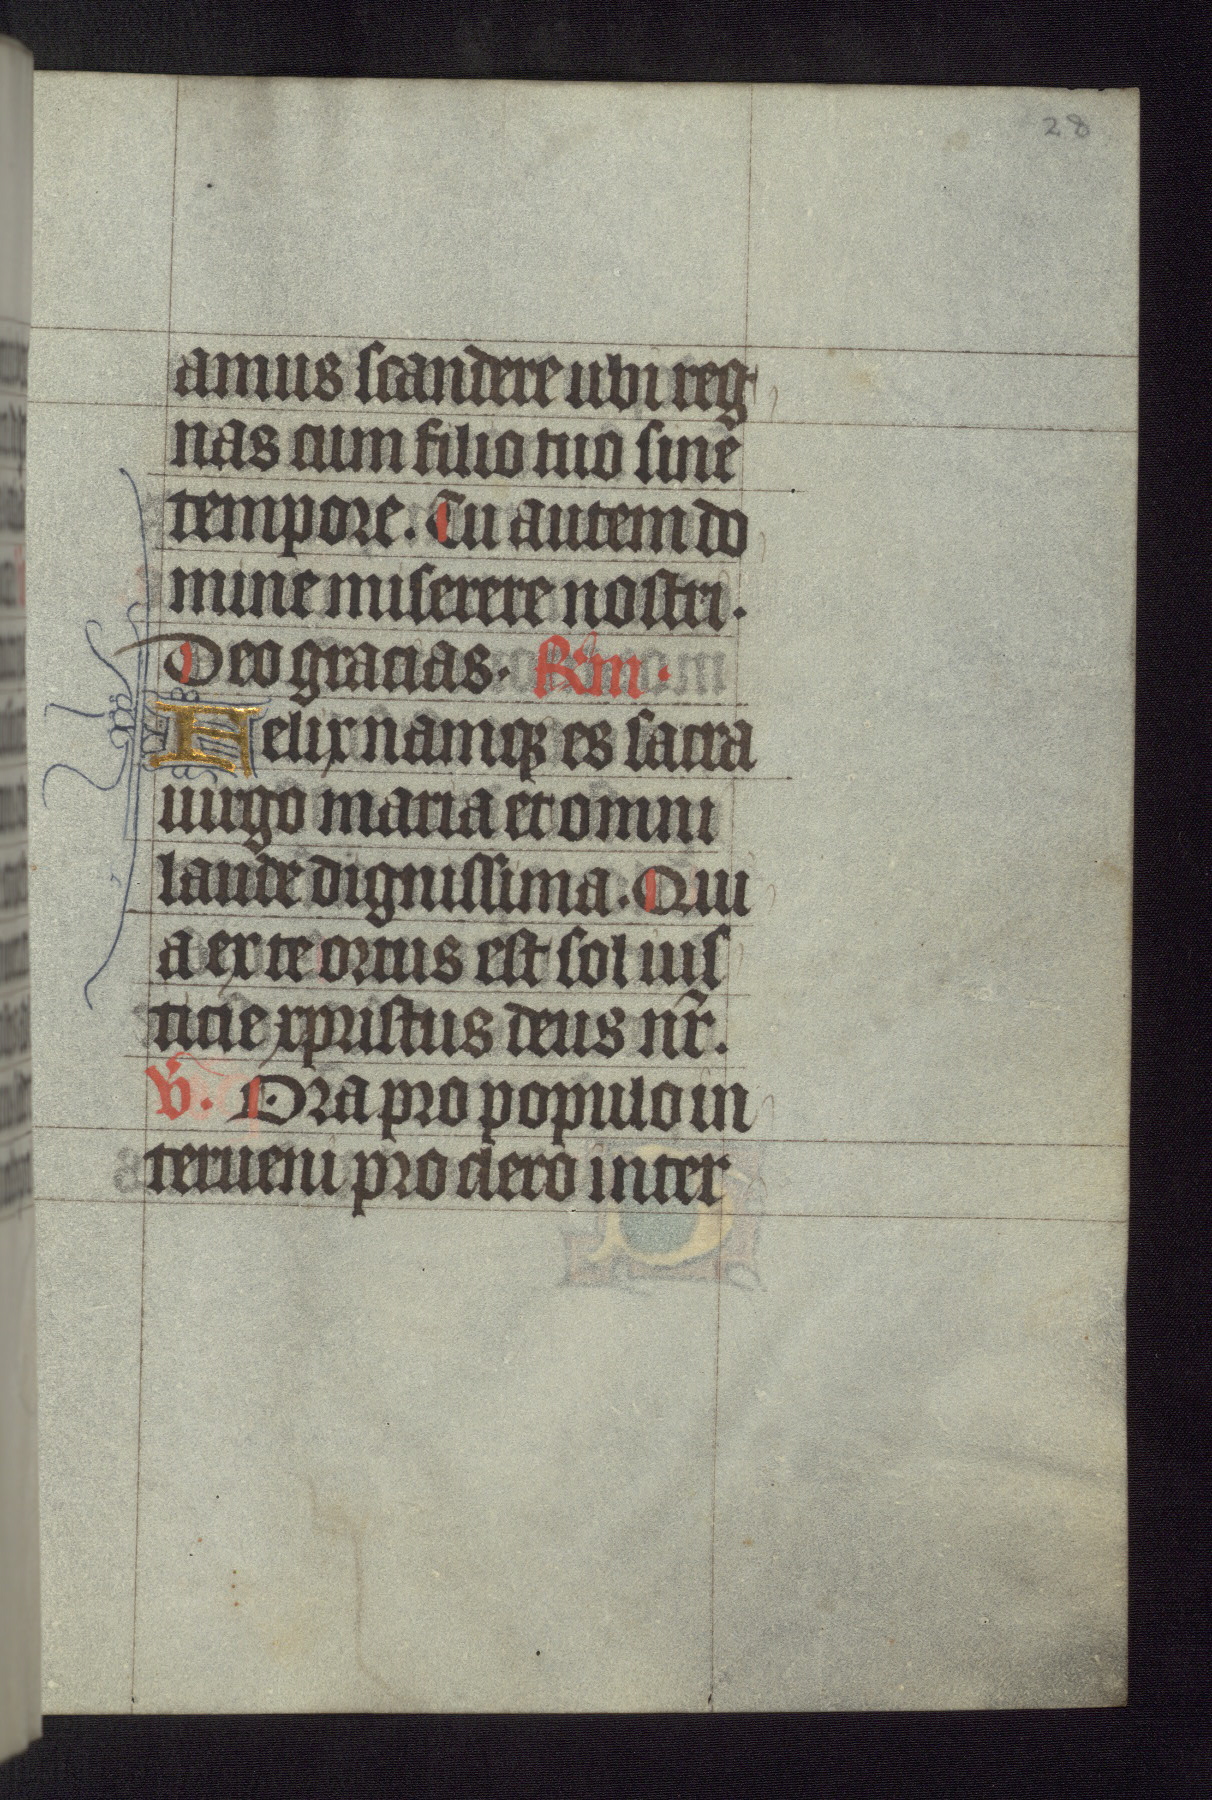 28
amus scandere ubi reg
nas cum filio tuo sine
tempore. Tu autem do
mine miserere nostri.
Deo gracias. R'm.
Felix namqꝫ es sacra
uirgo maria et omni
laude dignissima. Qui
a ex te ortus est sol ius
ticie xpristus deus nr̄.
V̄. Ora pro populo in
terueni pro clero inter